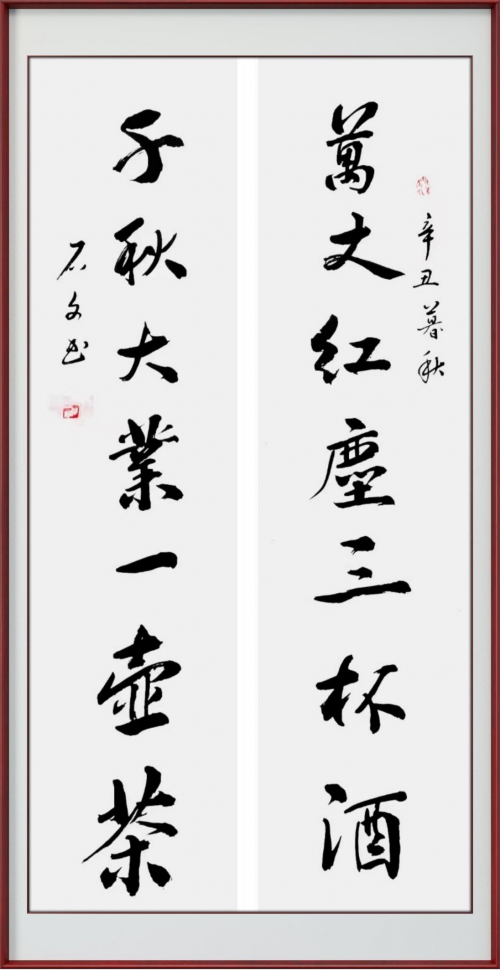 辛丑暮秋
萬丈紅塵三杯酒
千秋大業一壺茶
石文书